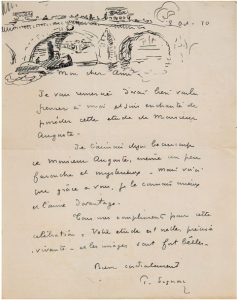 Mon cher Ami
Je vous remercie d'avoir bien voulu
penser à moi et suis enchanté de
posséder cette étude de Monsieur
Auguste.
J'aimais déjà beaucoup
ce Monsieur Auguste, même un peu
farouche et mystérieux. Mais voici
une grâce à vous, je le connais mieux
et l'aime davantage.
Tous mes compliments pour cette
célébration. Votre étude est nette, précise
vivante. et les images sont fort belles.
Bien cordialement
P. Signac